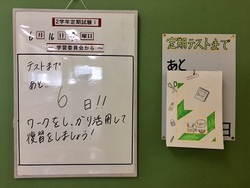 2学年定期試験!
6月16日 曜日
学習委員会から〜
テストまで
あと…
6日!!
ワークをしっかり活用して
復習をしましょう!
定期テストまで
あと
日